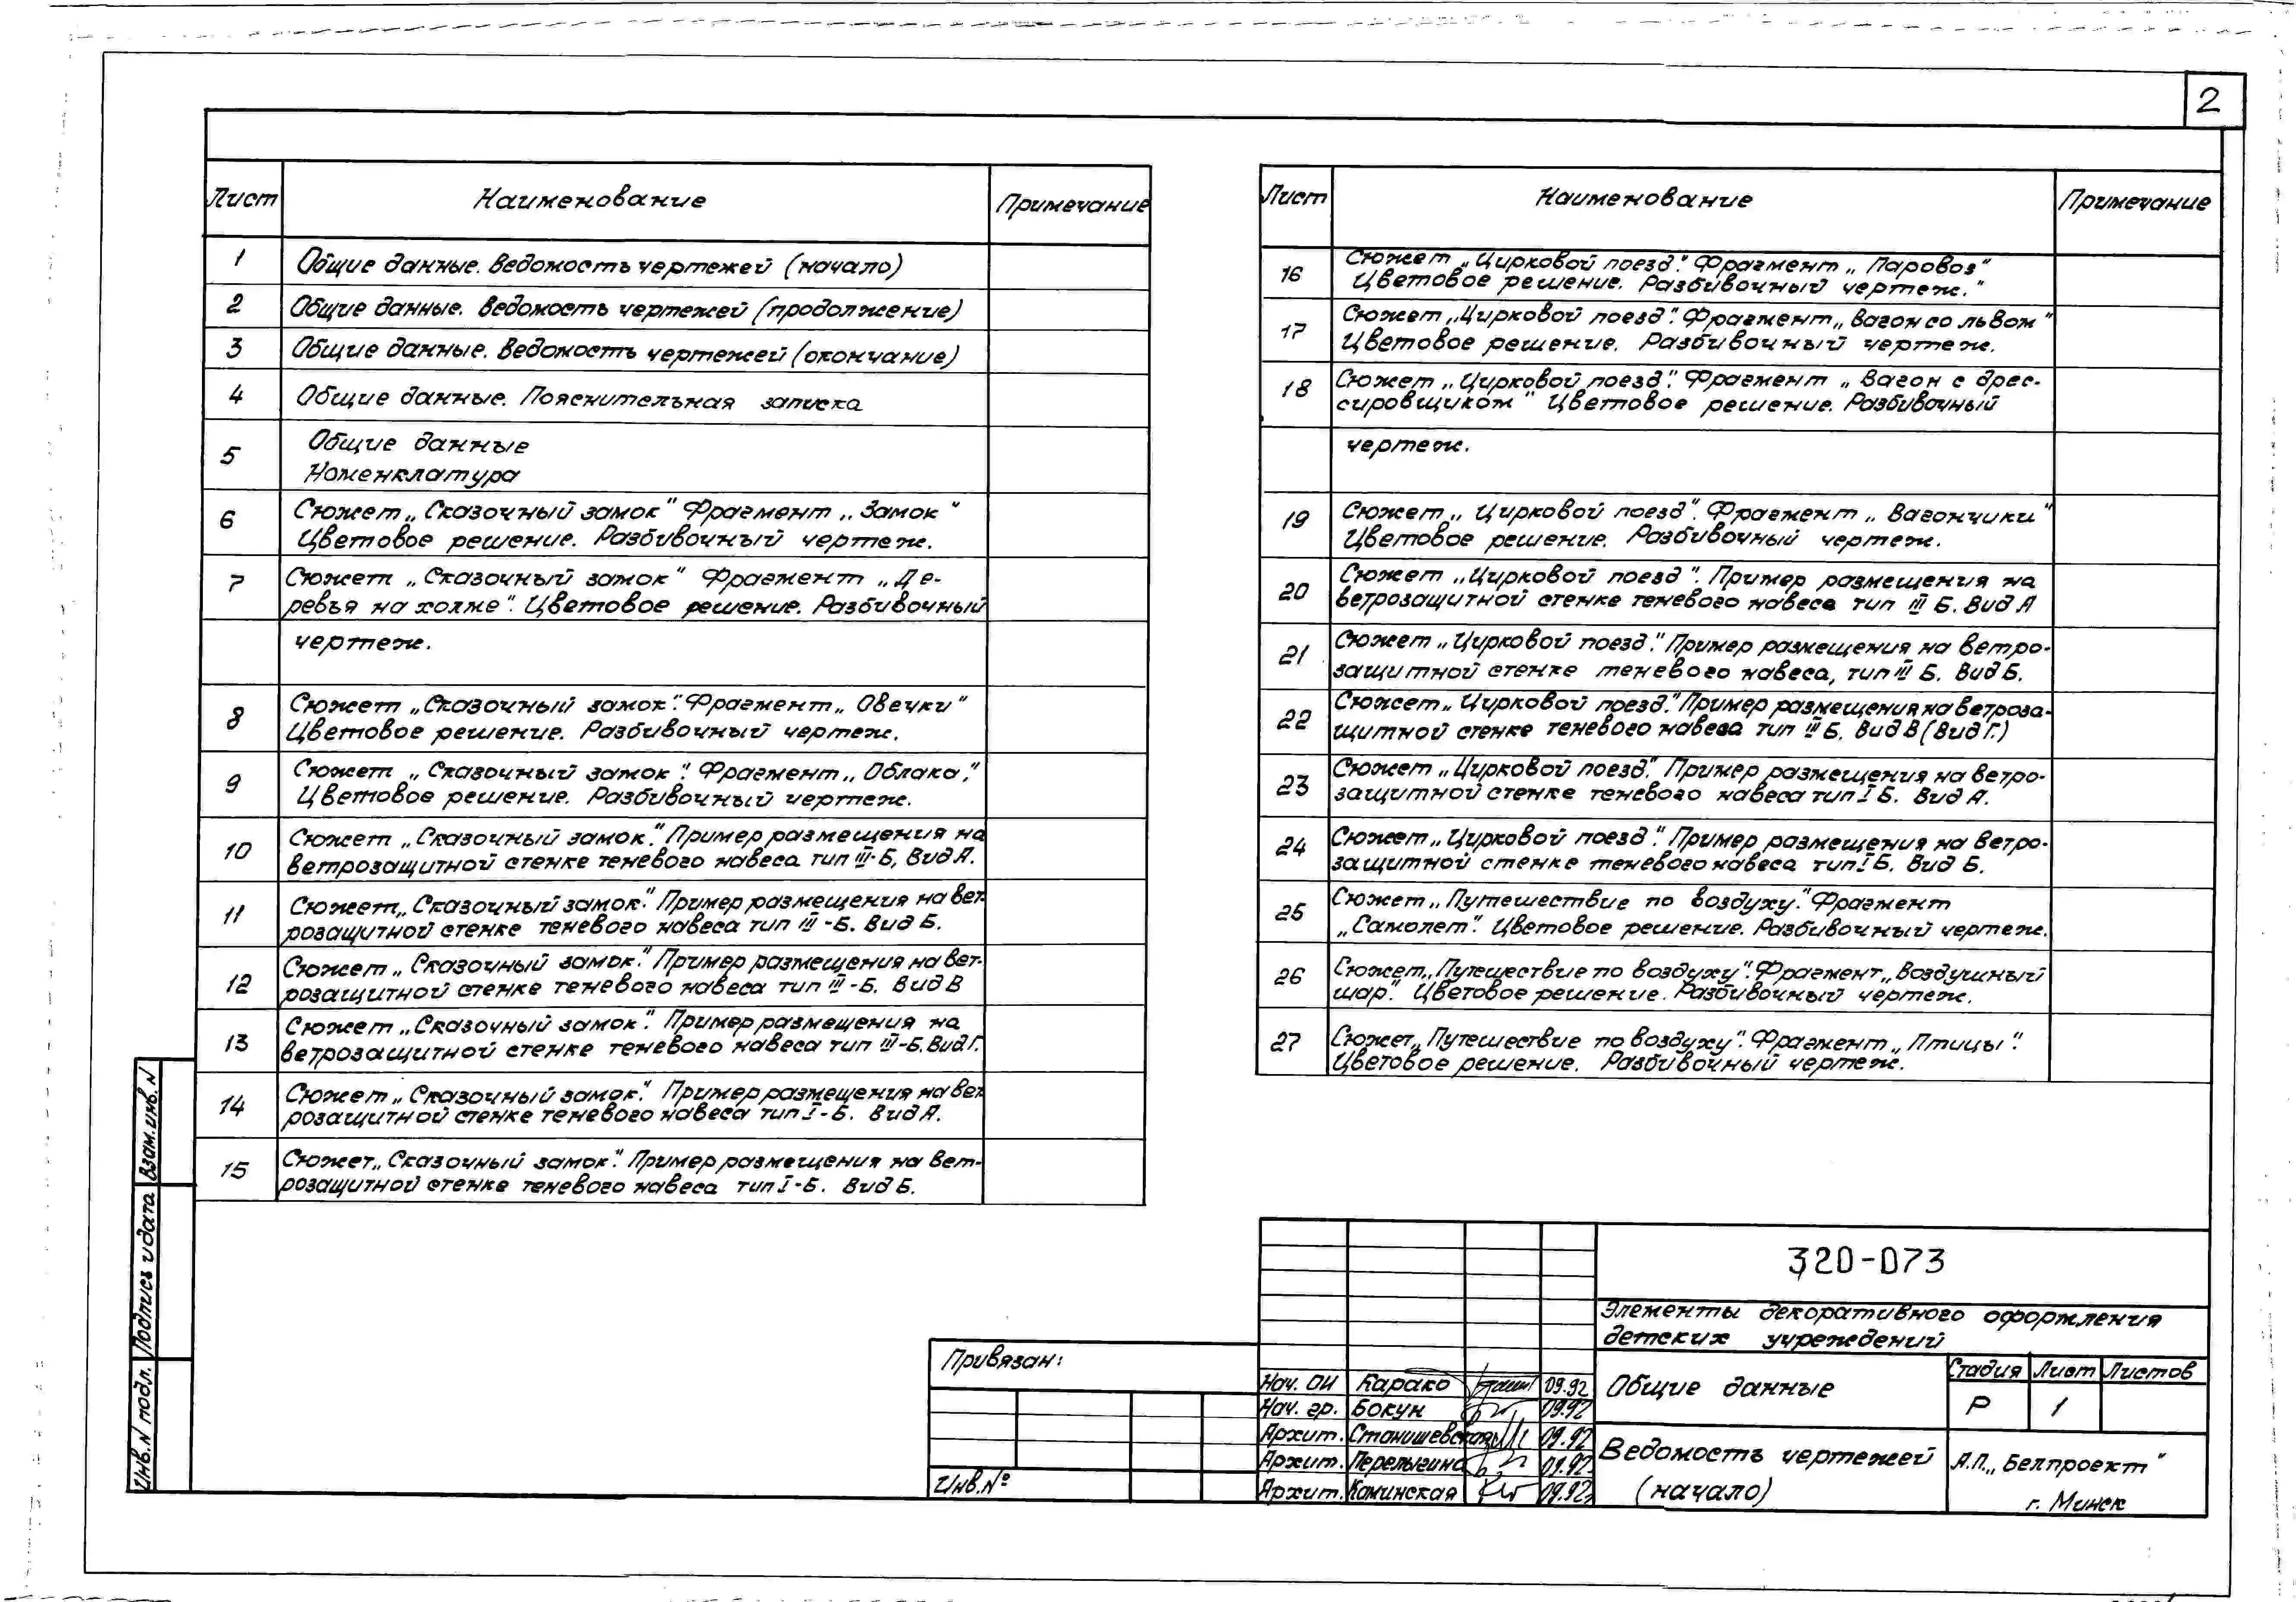 2
Лист Наименование Примечание
1 Общие данные. Ведомость чертежей (начало)
2 Общие данные. Ведомость чертежей (продолжение)
3 Общие данные. Ведомость чертежей (окончание)
4 Общие данные. Пояснительная записка
5 Общие данные
Номенклатура
6 Сюжет „Сказочный замок" Фрагмент „Замок"
Цветовое решение. Разбивочный чертеж.
7 Сюжет „Сказочный замок" Фрагмент „Де-
ревья на холме". Цветовое решение. Разбивочный
чертеж.
8 Сюжет „Сказочный замок". Фрагмент „Овечки"
Цветовое решение. Разбивочный чертеж.
9 Сюжет „Сказочный замок". Фрагмент „Облака",
Цветовое решение. Разбивочный чертеж.
10 Сюжет „Сказочный замок". Пример размещения на
ветрозащитной стенке теневого навеса тип III-Б, Вид А.
11 Сюжет „Сказочный замок". Пример размещения на вет-
розащитной стенке теневого навеса тип III-Б. Вид Б.
12 Сюжет „Сказочный замок". Пример размещения на вет-
розащитной стенке теневого навеса тип III-Б. Вид В
13 Сюжет „Сказочный замок". Пример размещения на
ветрозащитной стенке теневого навеса тип III-Б. Вид Г.
14 Сюжет „Сказочный замок". Пример размещения на вет-
розащитной стенке теневого навеса тип I-Б. Вид А.
15 Сюжет „Сказочный замок". Пример размещения на вет-
розащитной стенке теневого навеса тип I-Б. Вид Б.
Лист Наименование Примечание
16 Сюжет „Цирковой поезд". Фрагмент „Паровоз"
Цветовое решение. Разбивочный чертеж."
17 Сюжет „Цирковой поезд". Фрагмент „Вагон со львом"
Цветовое решение. Разбивочный чертеж.
18 Сюжет „Цирковой поезд". Фрагмент „Вагон с дрес-
сировщиком" Цветовое решение. Разбивочный
чертеж.
19 Сюжет „Цирковой поезд". Фрагмент „Вагончики"
Цветовое решение. Разбивочный чертеж.
20 Сюжет „Цирковой поезд". Пример размещения на
ветрозащитной стенке теневого навеса тип III Б. Вид А
21 Сюжет „Цирковой поезд". Пример размещения на ветро-
защитной стенке теневого навеса, тип III Б. Вид Б.
22 Сюжет „Цирковой поезд". Пример размещения на ветроза-
щитной стенке теневого навеса тип III Б. Вид В (Вид Г.)
23 Сюжет „Цирковой поезд". Пример размещения на ветро-
защитной стенке теневого навеса тип I Б. Вид А.
24 Сюжет „Цирковой поезд". Пример размещения на ветро-
защитной стенке теневого навеса тип I Б. Вид Б.
25 Сюжет „Путешествие по воздуху". Фрагмент
„Самолет". Цветовое решение. Разбивочный чертеж.
26 Сюжет „Путешествие по воздуху". Фрагмент „Воздушный
шар". Цветовое решение. Разбивочный чертеж.
27 Сюжет „Путешествие по воздуху". Фрагмент „Птицы".
Цветовое решение. Разбивочный чертеж.
Взам. инв. N
Подпись и дата
Инв. N подл.
Привязан:
Инв. №
Нач. ОИ Карако 09.92
Нач. гр. Бокун 09.92
Архит. Станишевская 09.92
Архит. Перелыгина 09.92
Архит. Каминская 09.92
320-073
Элементы декоративного оформления
детских учреждений
Общие данные
Стадия Лист Листов
Р 1
Ведомость чертежей
(начало)
А.П. „Белпроект"
г. Минск